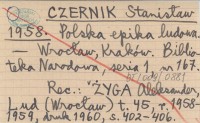 CZERNIK Stanisław
1958. Polska epika ludowa.
— Wrocław, Kraków. Biblio-
teka Narodowa, seria I, nr 167.
Rec.: ŻYGA Aleksander,
Lud (Wrocław) t. 45, r. 1958-
1959, druk 1960, s. 402-406.